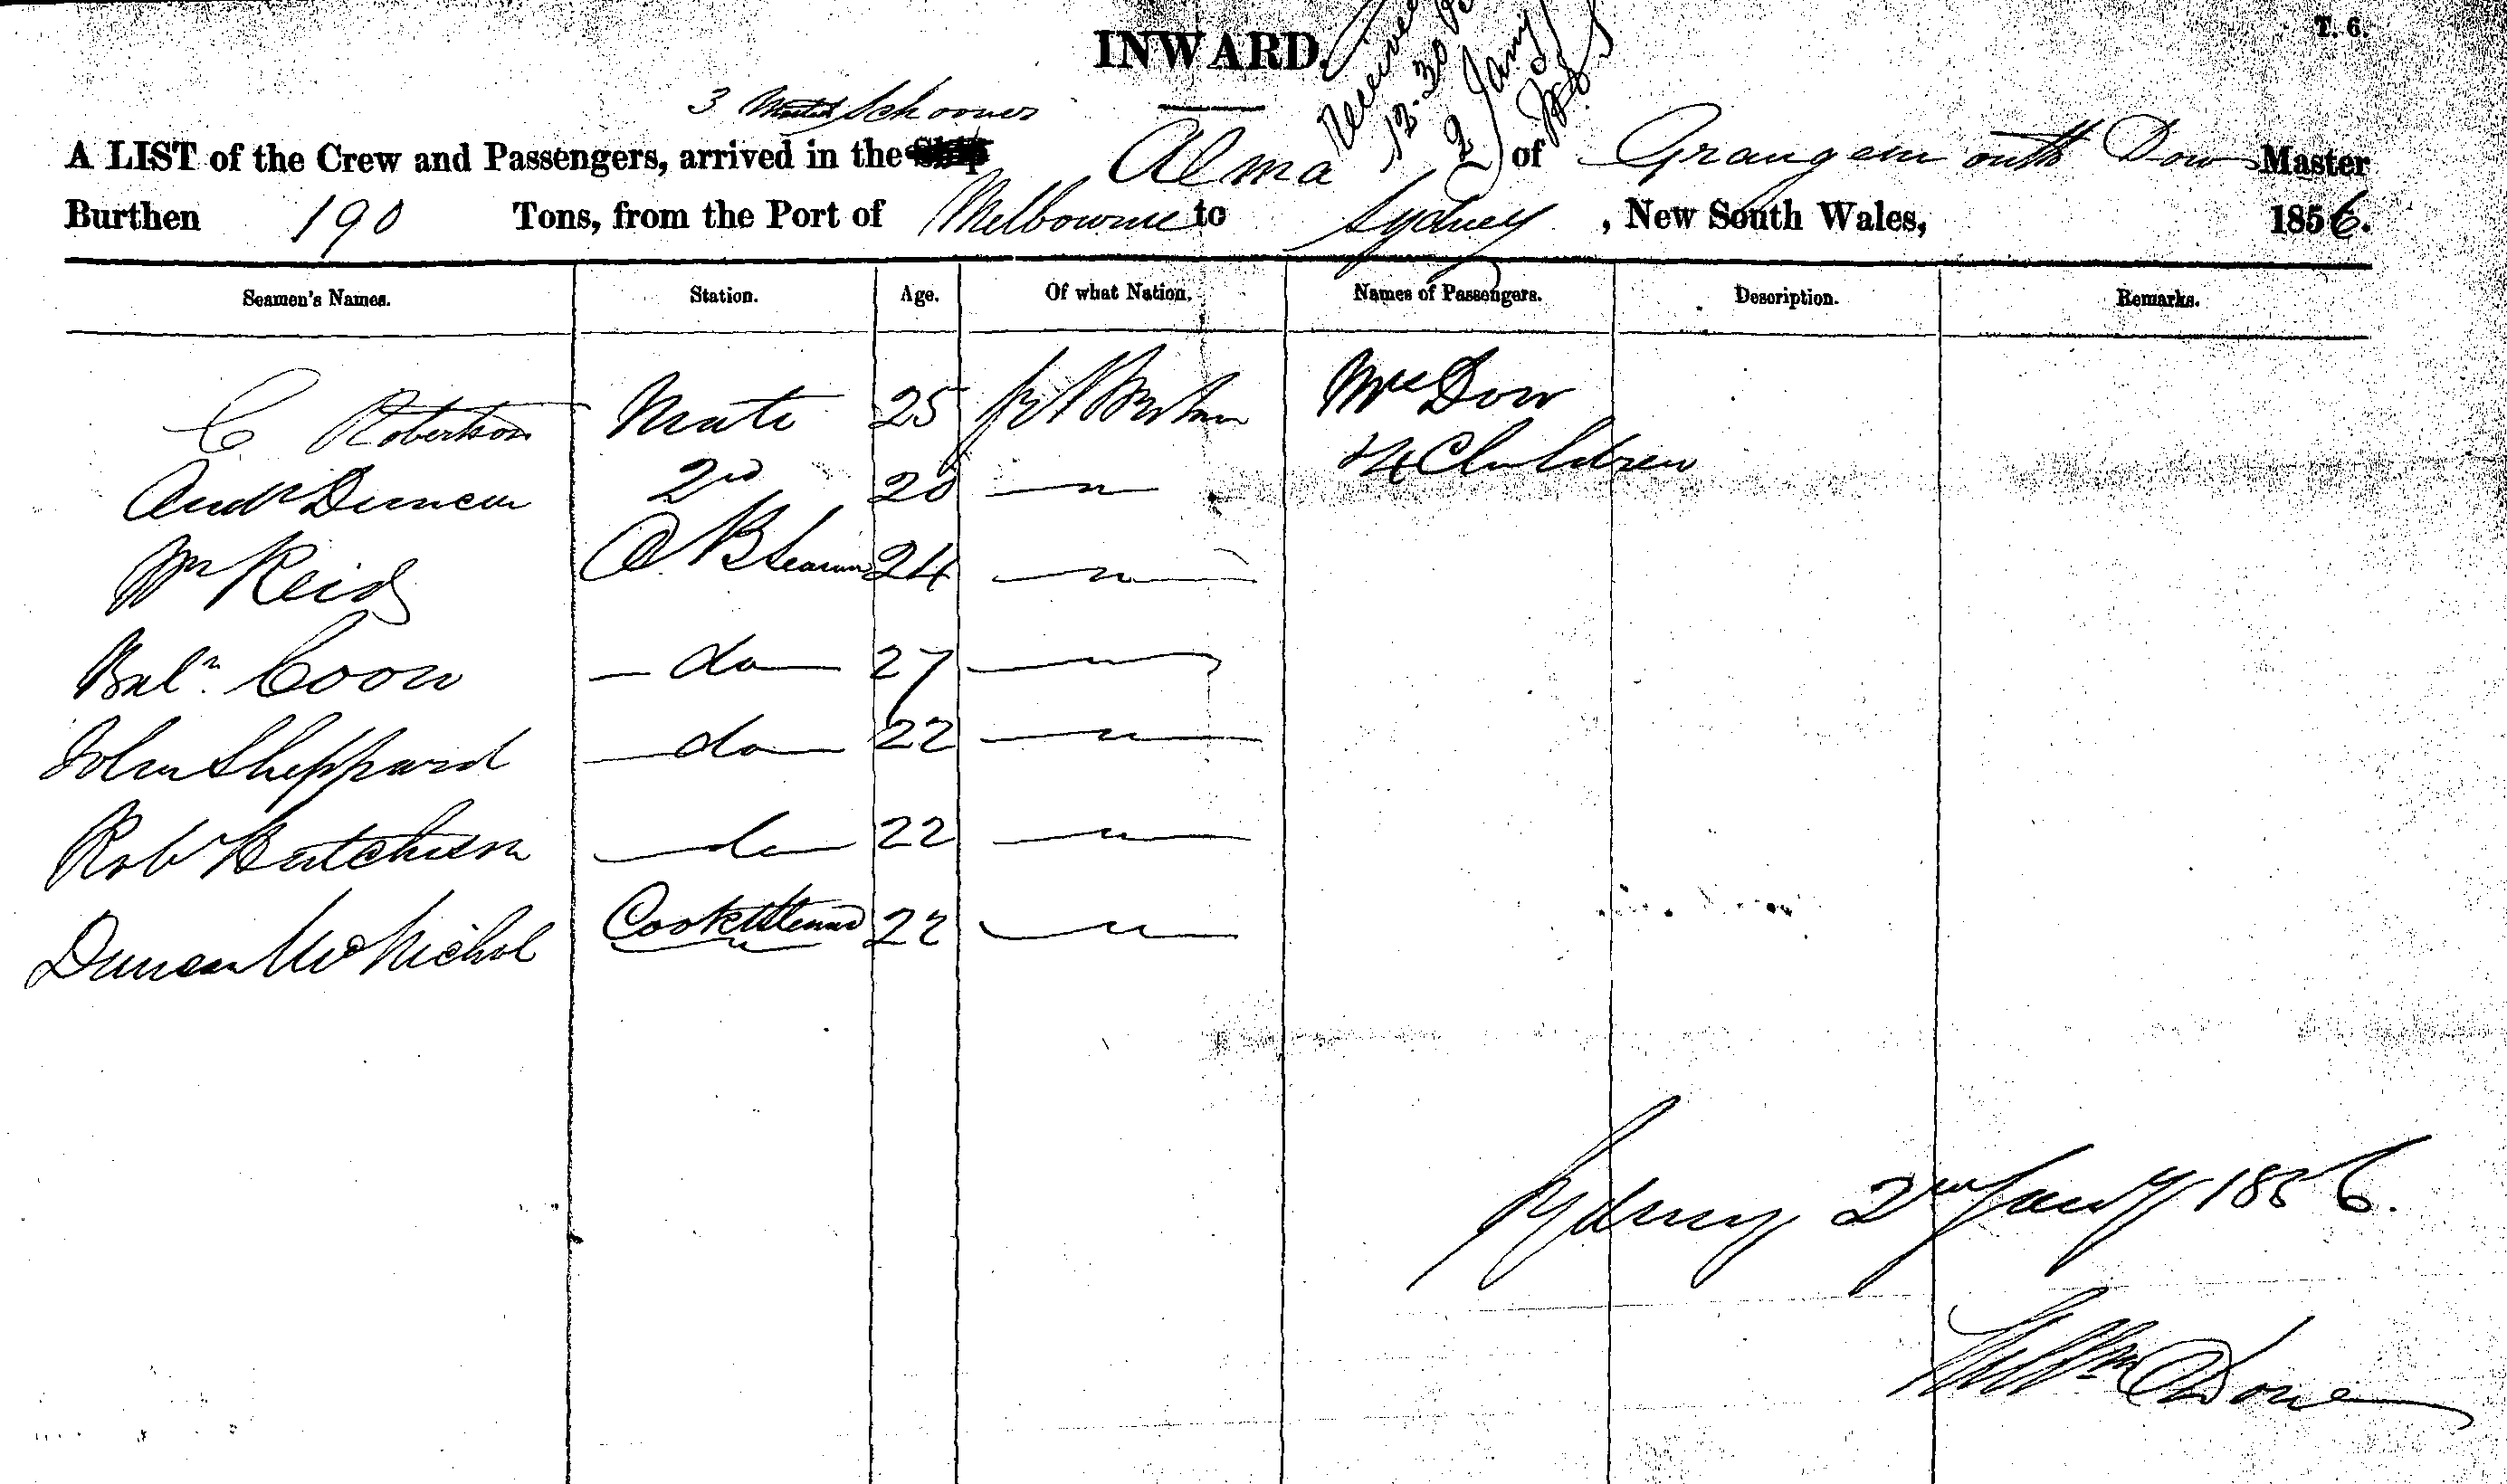 T. 6.
INWARD.
Received
12.30
2 Jany
3 Masted Schooner
A LIST of the Crew and Passengers, arrived in the Ship Alma of Grangemouth Dow Master
Burthen 190 Tons, from the Port of Melbourne to Sydney, New South Wales, 1856.
Seamen's Names. Station. Age. Of what Nation. Names of Passengers. Description. Remarks.
C Robertson Mate 25 Mrs Dow
Andw Duncan 2nd 20 — " — 4 Children
Wm Reid A B Seaman 24 — " —
— do — 27 — " —
John Sheppard — do — 22 — " —
Robt Hutchison — do — 22 — " —
Duncan McNichol Cook & Steward 22 — " —
Sydney 2nd Jany 1856.
Willm Dow